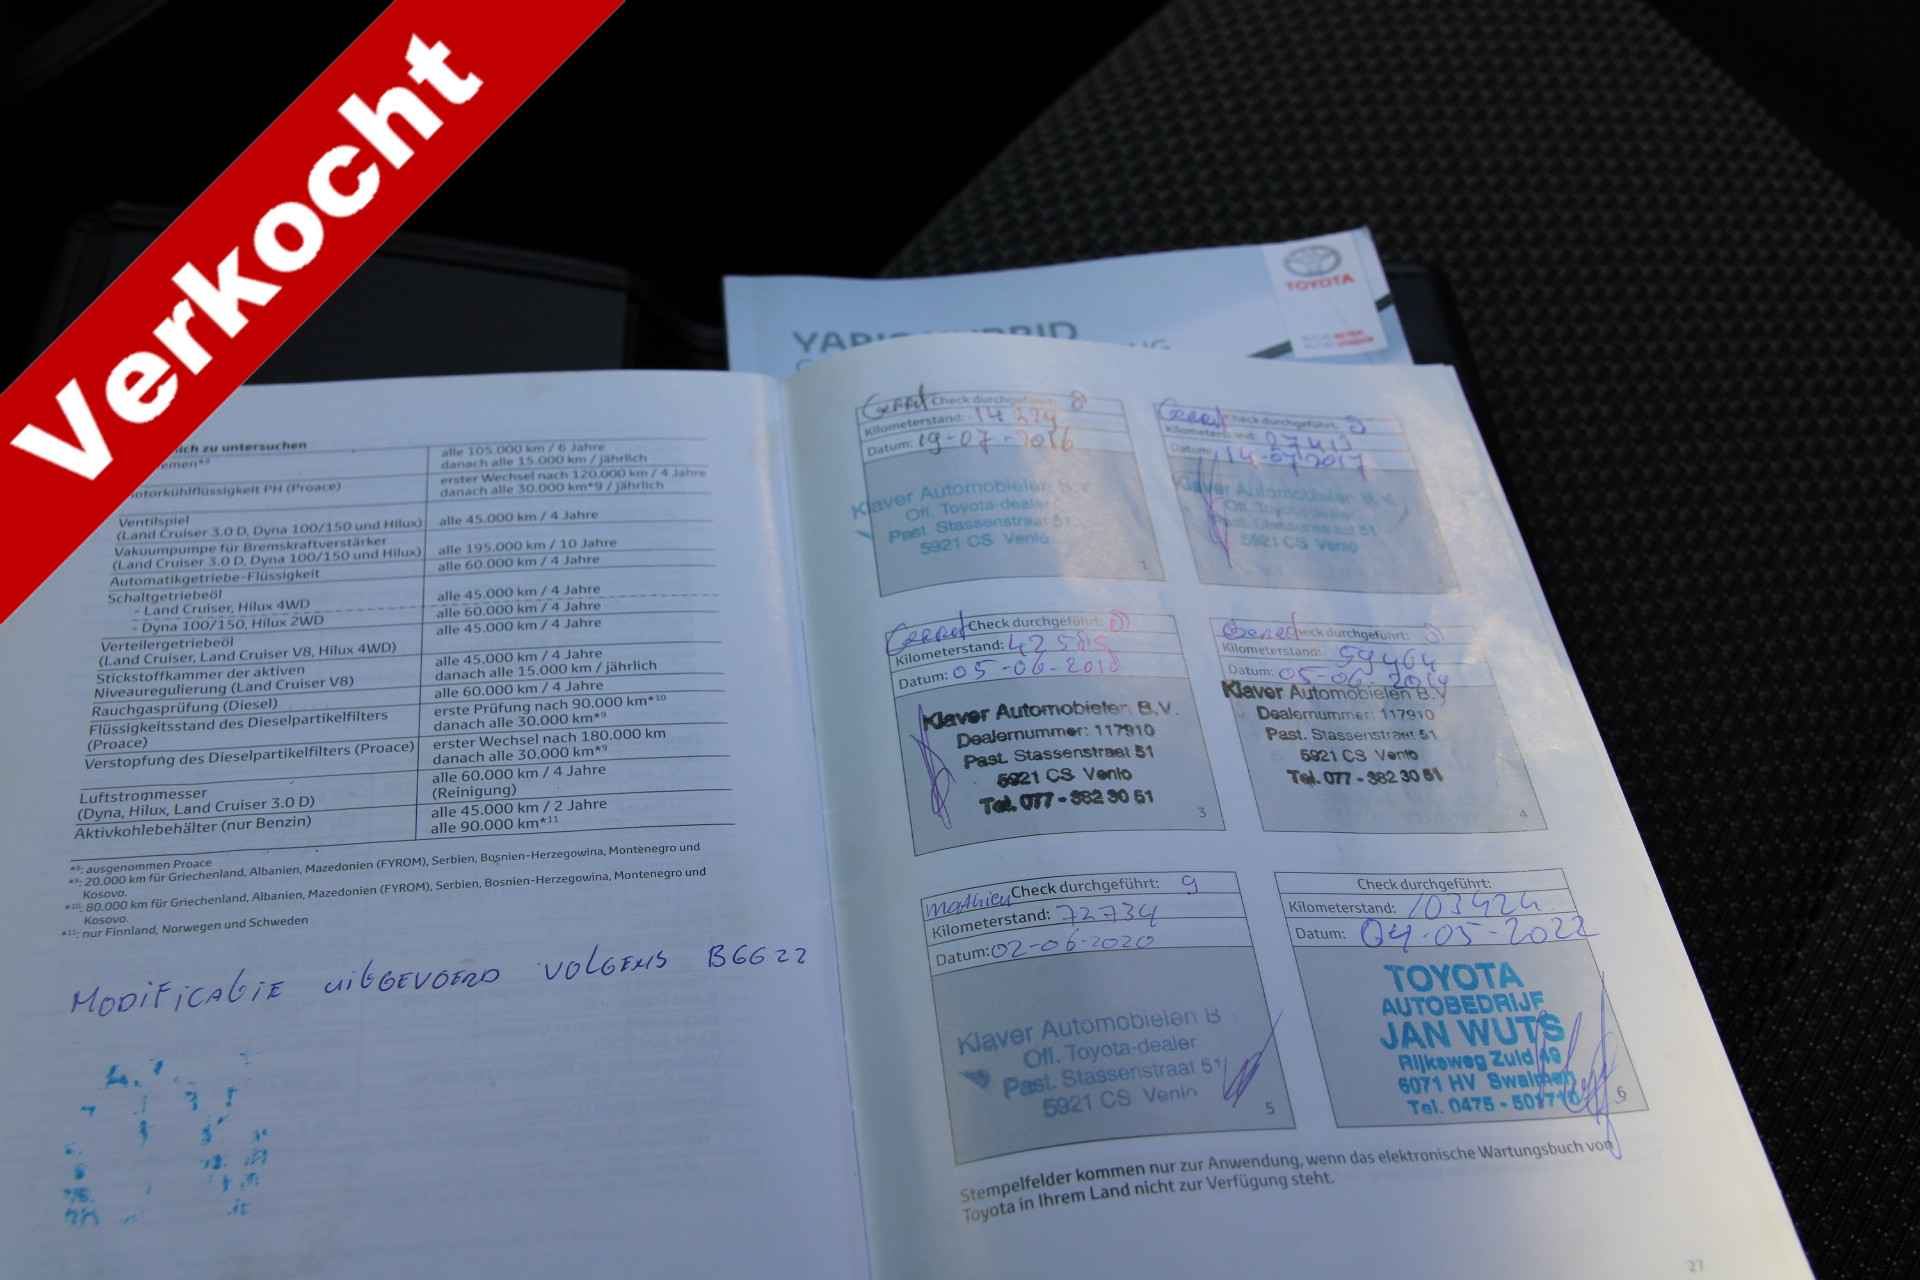 Verkocht
TOYOTA
ich zu untersuchen
alle 105.000 km / 6 Jahre
danach alle 15.000 km / jährlich
erster Wechsel nach 120.000 km / 4 Jahre
danach alle 30.000 km*9 / jährlich
Ventilspiel
(Land Cruiser 3.0 D, Dyna 100/150 und Hilux)
alle 45.000 km / 4 Jahre
Vakuumpumpe für Bremskraftverstärker
(Land Cruiser 3.0 D, Dyna 100/150 und Hilux)
alle 195.000 km / 10 Jahre
Automatikgetriebe-Flüssigkeit
alle 60.000 km / 4 Jahre
Schaltgetriebeöl
- Land Cruiser, Hilux 4WD
alle 45.000 km / 4 Jahre
- Dyna 100/150, Hilux 2WD
alle 60.000 km / 4 Jahre
Verteilergetriebeöl
(Land Cruiser, Land Cruiser V8, Hilux 4WD)
alle 45.000 km / 4 Jahre
Stickstoffkammer der aktiven
Niveauregulierung (Land Cruiser V8)
alle 45.000 km / 4 Jahre
danach alle 15.000 km / jährlich
Rauchgasprüfung (Diesel)
alle 60.000 km / 4 Jahre
Flüssigkeitsstand des Dieselpartikelfilters
(Proace)
erste Prüfung nach 90.000 km*10
danach alle 30.000 km*9
Verstopfung des Dieselpartikelfilters (Proace)
erster Wechsel nach 180.000 km
danach alle 30.000 km*9
Luftstrommesser
(Dyna, Hilux, Land Cruiser 3.0 D)
alle 60.000 km / 4 Jahre
(Reinigung)
Aktivkohlebehälter (nur Benzin)
alle 45.000 km / 2 Jahre
alle 90.000 km*11
*8: ausgenommen Proace
*9: 20.000 km für Griechenland, Albanien, Mazedonien (FYROM), Serbien, Bosnien-Herzegowina, Montenegro und
Kosovo.
*10: 80.000 km für Griechenland, Albanien, Mazedonien (FYROM), Serbien, Bosnien-Herzegowina, Montenegro und
Kosovo.
*11: nur Finnland, Norwegen und Schweden
MODIFICATIE UITGEVOERD VOLGENS BGG22
Check durchgeführt:
Kilometerstand:
Datum: 19-07-2016
Klaver Automobielen B.V.
Off. Toyota-dealer
Past. Stassenstraat 51
5921 CS Venlo
1
Check durchgeführt:
Datum: 14-07-2017
Klaver Automobielen B.V.
Off. Toyota-dealer
Past. Stassenstraat 51
5921 CS Venlo
Check durchgeführt:
Kilometerstand: 42585
Datum: 05-06-2018
Klaver Automobielen B.V.
Dealernummer: 117910
Past. Stassenstraat 51
5921 CS Venlo
Tel. 077 - 382 30 51
3
Check durchgeführt:
Kilometerstand: 59464
Datum: 05-06-2019
Klaver Automobielen B.V
Dealernummer: 117910
Past. Stassenstraat 51
5921 CS Venlo
Tel. 077 - 382 30 51
4
Mathieu Check durchgeführt: 9
Kilometerstand: 72734
Datum: 02-06-2020
Klaver Automobielen B
Off. Toyota-dealer
Past. Stassenstraat 51
5921 CS Venlo
5
Check durchgeführt:
Kilometerstand: 103424
Datum: 04-05-2022
TOYOTA
AUTOBEDRIJF
JAN WUTS
Rijksweg Zuid 49
6071 HV Swalmen
Tel. 0475 - 501710
6
Stempelfelder kommen nur zur Anwendung, wenn das elektronische Wartungsbuch von
Toyota in Ihrem Land nicht zur Verfügung steht.
27